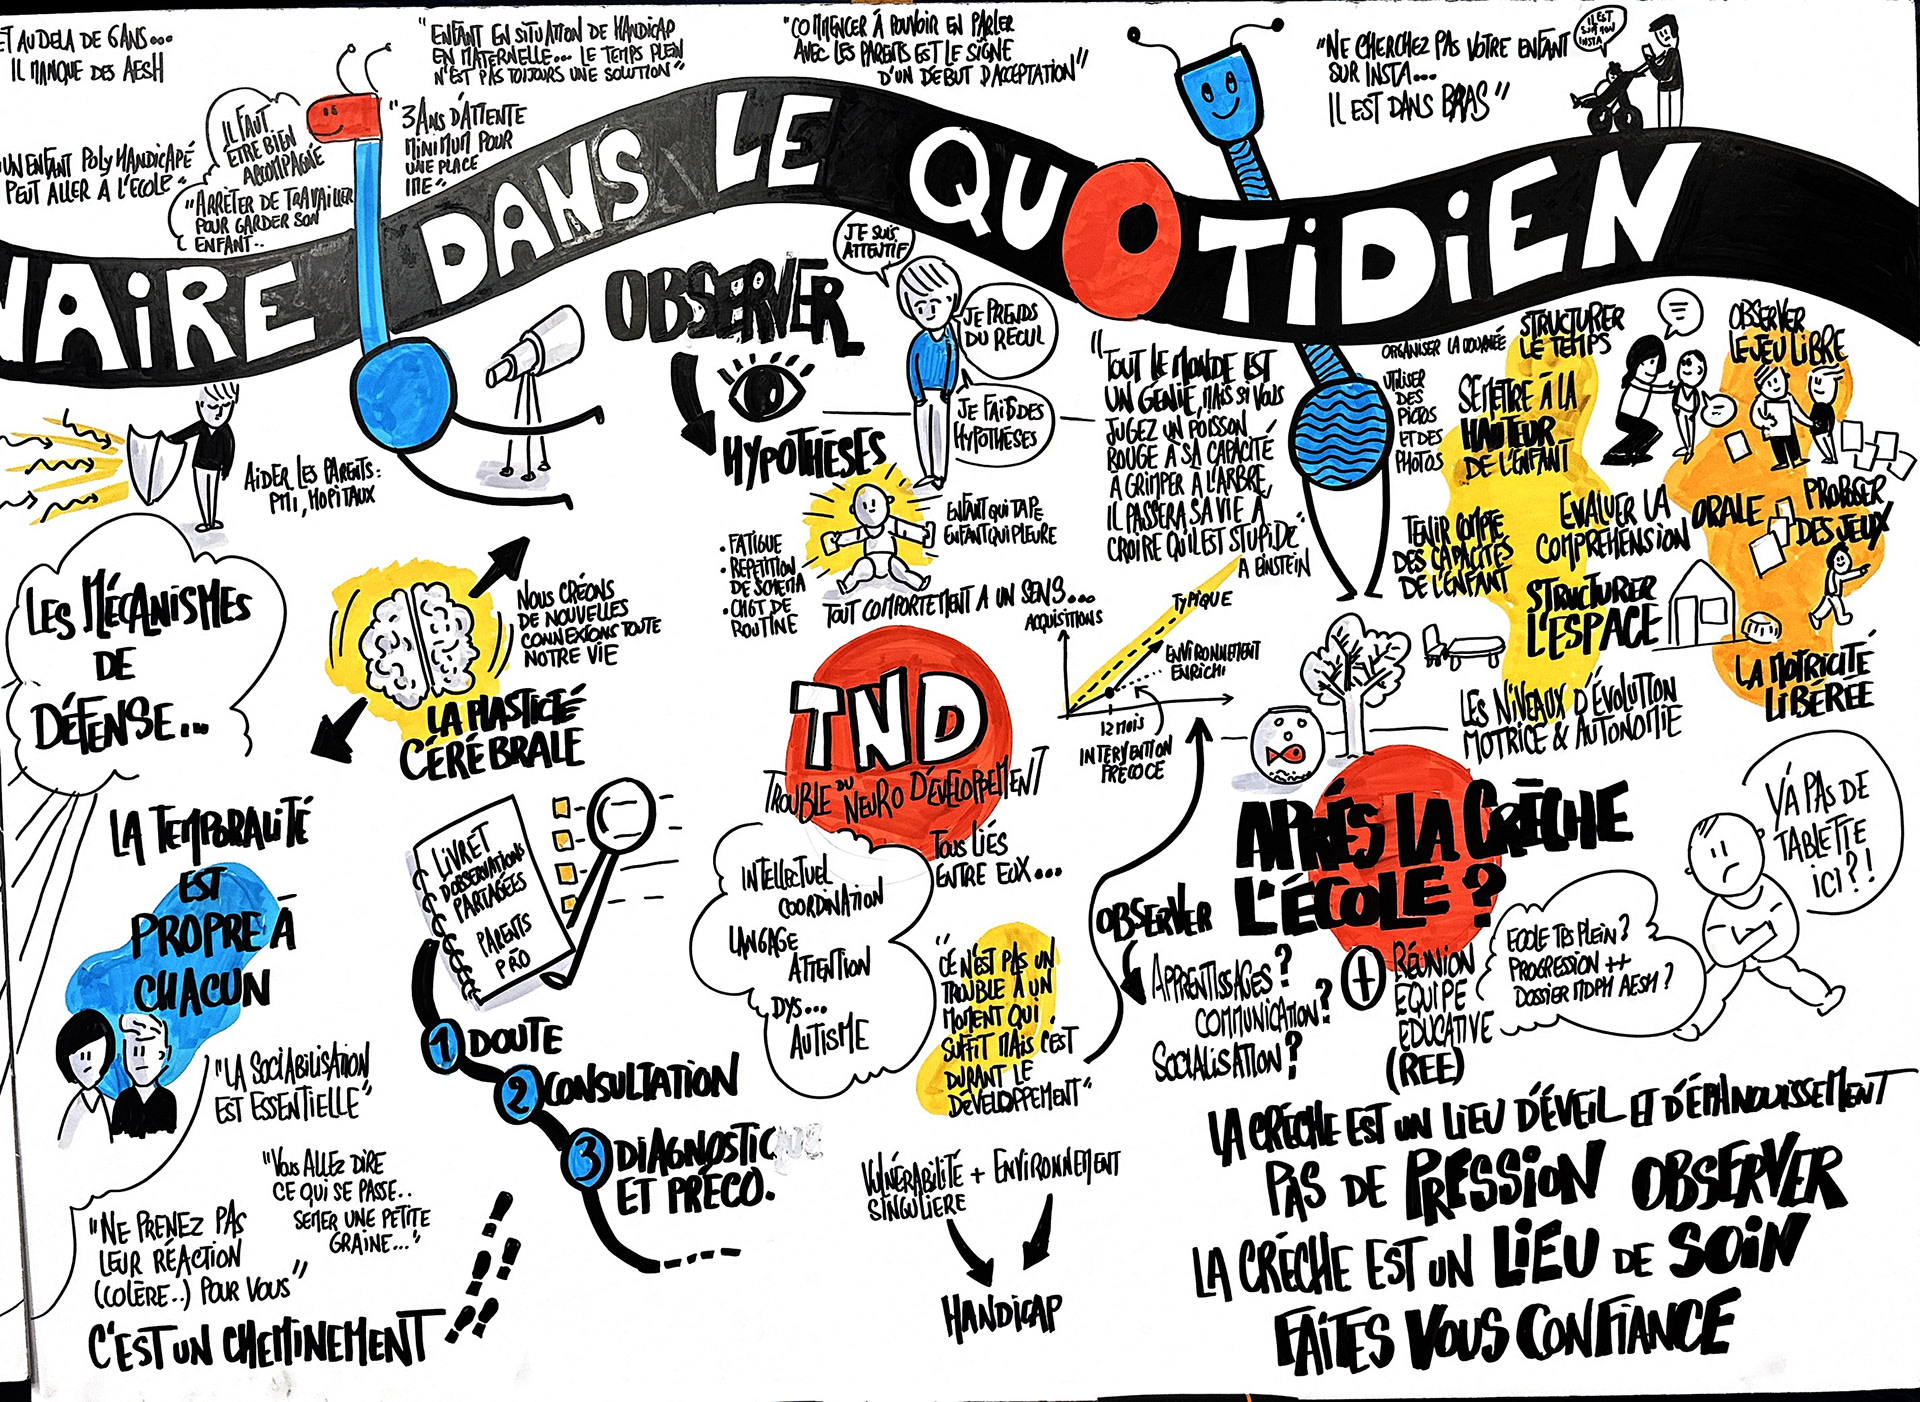 ET AU DELA DE 6 ANS...
IL MANQUE DES AESH
"ENFANT EN SITUATION DE HANDICAP
EN MATERNELLE... LE TEMPS PLEIN
N'EST PAS TOUJOURS UNE SOLUTION"
"COMMENCER À POUVOIR EN PARLER
AVEC LES PARENTS EST LE SIGNE
D'UN DEBUT D'ACCEPTATION"
"NE CHERCHEZ PAS VOTRE ENFANT
SUR INSTA...
IL EST DANS BRAS"
IL EST
SUR MON
INSTA
UN ENFANT POLYHANDICAPÉ
PEUT ALLER A L'ECOLE"
IL FAUT
ETRE BIEN
ACCOMPAGNE
"ARRÊTER DE TRAVAILLER
POUR GARDER SON
ENFANT..
"3 ANS D'ATTENTE
MINIMUM POUR
UNE PLACE
IME"
NAIRE DANS LE QUOTIDIEN
AIDER LES PARENTS:
PMI, HOPITAUX
LES MÉCANISMES
DE
DÉFENSE...
LA TEMPORALITÉ
EST
PROPRE À
CHACUN
"LA SOCIABILISATION
EST ESSENTIELLE"
"VOUS ALLEZ DIRE
CE QUI SE PASSE..
SEMER UNE PETITE
GRAINE..."
"NE PRENEZ PAS
LEUR RÉACTION
(COLÈRE..) POUR VOUS"
C'EST UN CHEMINEMENT
NOUS CRÉONS
DE NOUVELLES
CONNEXIONS TOUTE
NOTRE VIE
LA PLASTICTÉ
CÉRÉBRALE
LIVRET
D'OBSERVATIONS
PARTAGÉES
PARENTS
PRO
1 DOUTE
2 CONSULTATION
3 DIAGNOSTIC
ET PRÉCO.
OBSERVER
HYPOTHÈSES
JE SUIS
ATTENTIF
JE PRENDS
DU RECUL
JE FAIS DES
HYPOTHÈSES
• FATIGUE
• REPETITION
DE SCHEMA
• CHGT DE
ROUTINE
ENFANT QUI TAPE
ENFANT QUI PLEURE
TOUT COMPORTEMENT A UN SENS...
TND
TROUBLE DU NEURO DÉVELOPPEMENT
TOUS LIÉS
ENTRE EUX...
INTELLECTUEL
COORDINATION
LANGAGE
ATTENTION
DYS...
AUTISME
"CE N'EST PAS UN
TROUBLE À UN
MOMENT QUI
SUFFIT MAIS C'EST
DURANT LE
DÉVELOPPEMENT"
VULNÉRABILITÉ + ENVIRONNEMENT
SINGULIÈRE
HANDICAP
"TOUT LE MONDE EST
UN GÉNIE, MAIS SI VOUS
JUGEZ UN POISSON
ROUGE À SA CAPACITÉ
A GRIMPER A L'ARBRE,
IL PASSERA SA VIE À
CROIRE QU'IL EST STUPIDE"
A EINSTEIN
ACQUISITIONS
TYPIQUE
ENVIRONNEMENT
ENRICHI
12 MOIS
INTERVENTION
PRECOCE
ORGANISER LA JOURNÉE
STRUCTURER
LE TEMPS
UTILISER
DES
PICTOS
ET DES
PHOTOS
SE METTRE À LA
HAUTEUR
DE L'ENFANT
TENIR COMPTE
DES CAPACITÉS
DE L'ENFANT
EVALUER LA
COMPREHENSION ORALE
STRUCTURER
L'ESPACE
LES NIVEAUX D'ÉVOLUTION
MOTRICE & AUTONOMIE
OBSERVER
LE JEU LIBRE
PROPOSER
DES JEUX
LA MOTRICITÉ
LIBÉRÉE
APRÉS LA CRÈCHE
L'ÉCOLE ?
OBSERVER
APPRENTISSAGES ?
COMMUNICATION ?
SOCIALISATION ?
+ RÉUNION
EQUIPE
EDUCATIVE
(REE)
ECOLE TPS PLEIN ?
PROGRESSION ++
DOSSIER MDPH AESH ?
Y'A PAS DE
TABLETTE
ICI ?!
LA CRÈCHE EST UN LIEU D'ÉVEIL ET D'ÉPANOUISSEMENT
PAS DE PRESSION OBSERVER
LA CRÈCHE EST UN LIEU DE SOIN
FAITES VOUS CONFIANCE